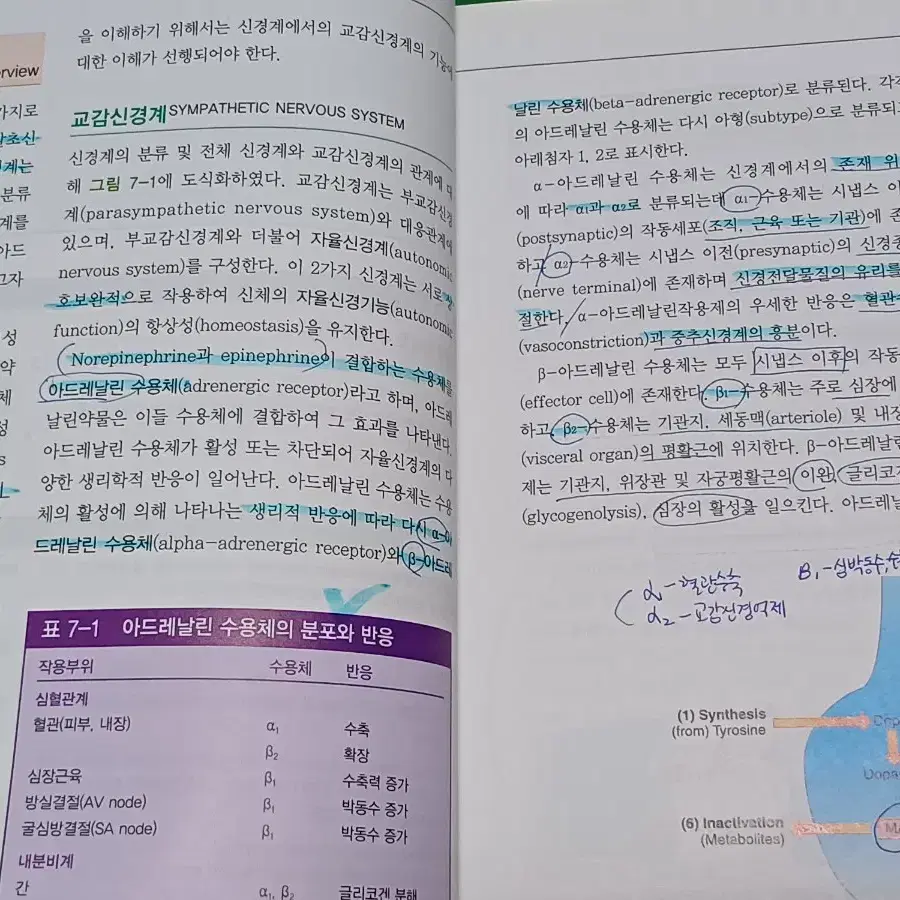 rview
가지로
계는
분류
계를
아드
성
약
체
성
을 이해하기 위해서는 신경계에서의 교감신경계의 기능에
대한 이해가 선행되어야 한다.
교감신경계 SYMPATHETIC NERVOUS SYSTEM
신경계의 분류 및 전체 신경계와 교감신경계의 관계에 대
해 그림 7-1에 도식화하였다. 교감신경계는 부교감신경
계(parasympathetic nervous system)와 대응관계에
있으며, 부교감신경계와 더불어 자율신경계(autonomic
nervous system)를 구성한다. 이 2가지 신경계는 서로 상
호보완적으로 작용하여 신체의 자율신경기능(autonomic
function)의 항상성(homeostasis)을 유지한다.
Norepinephrine과 epinephrine이 결합하는 수용체를
아드레날린 수용체(adrenergic receptor)라고 하며, 아드레
날린약물은 이들 수용체에 결합하여 그 효과를 나타낸다.
아드레날린 수용체가 활성 또는 차단되어 자율신경계의 다
양한 생리학적 반응이 일어난다. 아드레날린 수용체는 수용
체의 활성에 의해 나타나는 생리적 반응에 따라 다시 α-아
드레날린 수용체(alpha-adrenergic receptor)와 β-아드레
표 7-1 아드레날린 수용체의 분포와 반응
작용부위 수용체 반응
심혈관계
혈관(피부, 내장) α₁ 수축
β₂ 확장
심장근육 β₁ 수축력 증가
방실결절(AV node) β₁ 박동수 증가
굴심방결절(SA node) β₁ 박동수 증가
내분비계
간 α₁, β₂ 글리코겐 분해
날린 수용체(beta-adrenergic receptor)로 분류된다. 각각
의 아드레날린 수용체는 다시 아형(subtype)으로 분류되
아래첨자 1, 2로 표시한다.
α-아드레날린 수용체는 신경계에서의 존재 위
에 따라 α₁과 α₂로 분류되는데 α₁-수용체는 시냅스 이
(postsynaptic)의 작동세포(조직, 근육 또는 기관)에 존
하고 α₂-수용체는 시냅스 이전(presynaptic)의 신경종
(nerve terminal)에 존재하며 신경전달물질의 유리를
절한다. α-아드레날린작용제의 우세한 반응은 혈관수
(vasoconstriction)과 중추신경계의 흥분이다.
β-아드레날린 수용체는 모두 시냅스 이후의 작동
(effector cell)에 존재한다. β₁-수용체는 주로 심장에
하고, β₂-수용체는 기관지, 세동맥(arteriole) 및 내장
(visceral organ)의 평활근에 위치한다. β-아드레날린
제는 기관지, 위장관 및 자궁평활근의 이완, 글리코겐
(glycogenolysis), 심장의 활성을 일으킨다. 아드레날
α₁-혈관수축
α₂-교감신경억제
B₁-심박동수,
(1) Synthesis
(from) Tyrosine
Dopa
(6) Inactivation
(Metabolites)